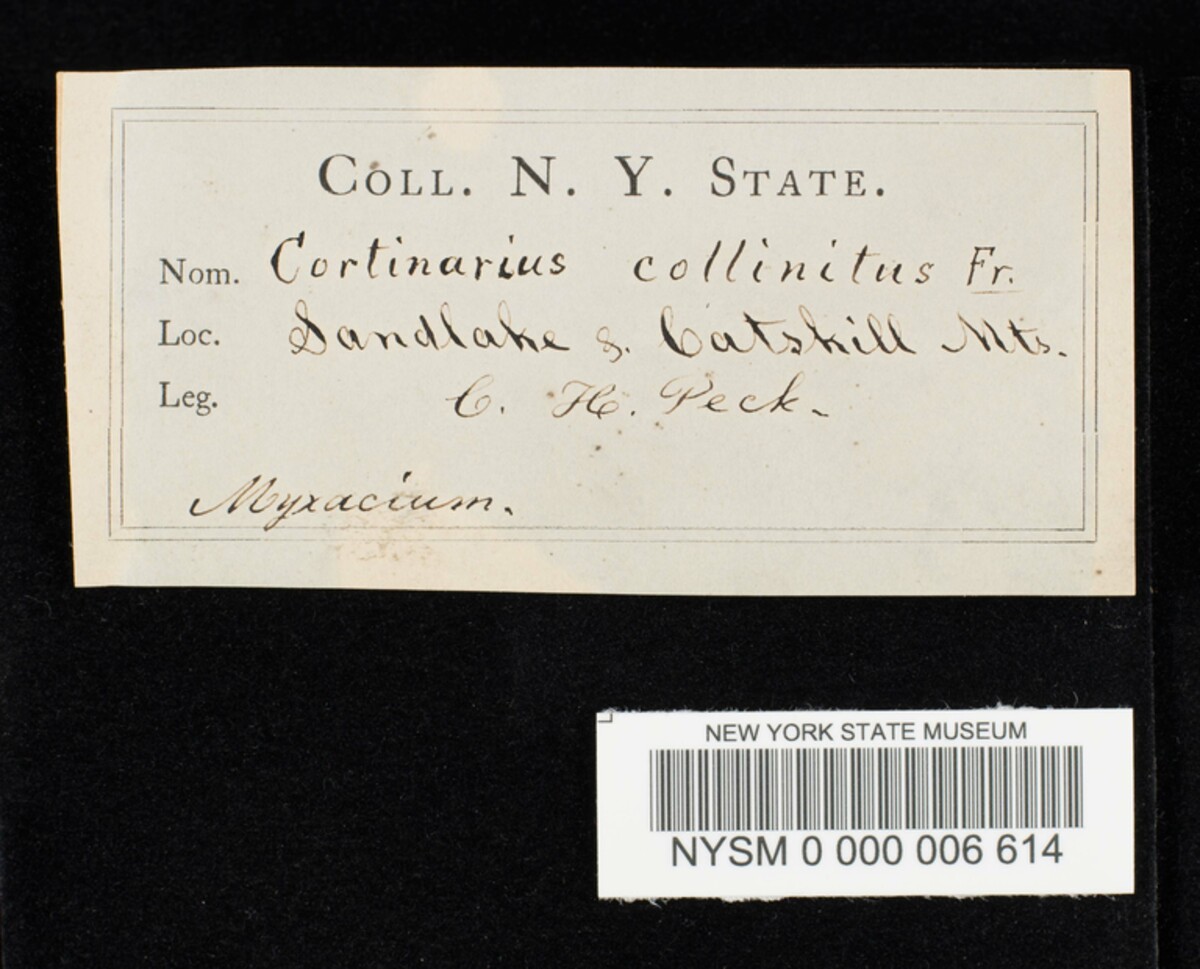 COLL. N. Y. STATE.
Nom. Cortinarius collinitus Fr.
Loc. Sandlake & Catskill Mts.
Leg. C. H. Peck.
Myxacium.
NEW YORK STATE MUSEUM
NYSM 0 000 006 614